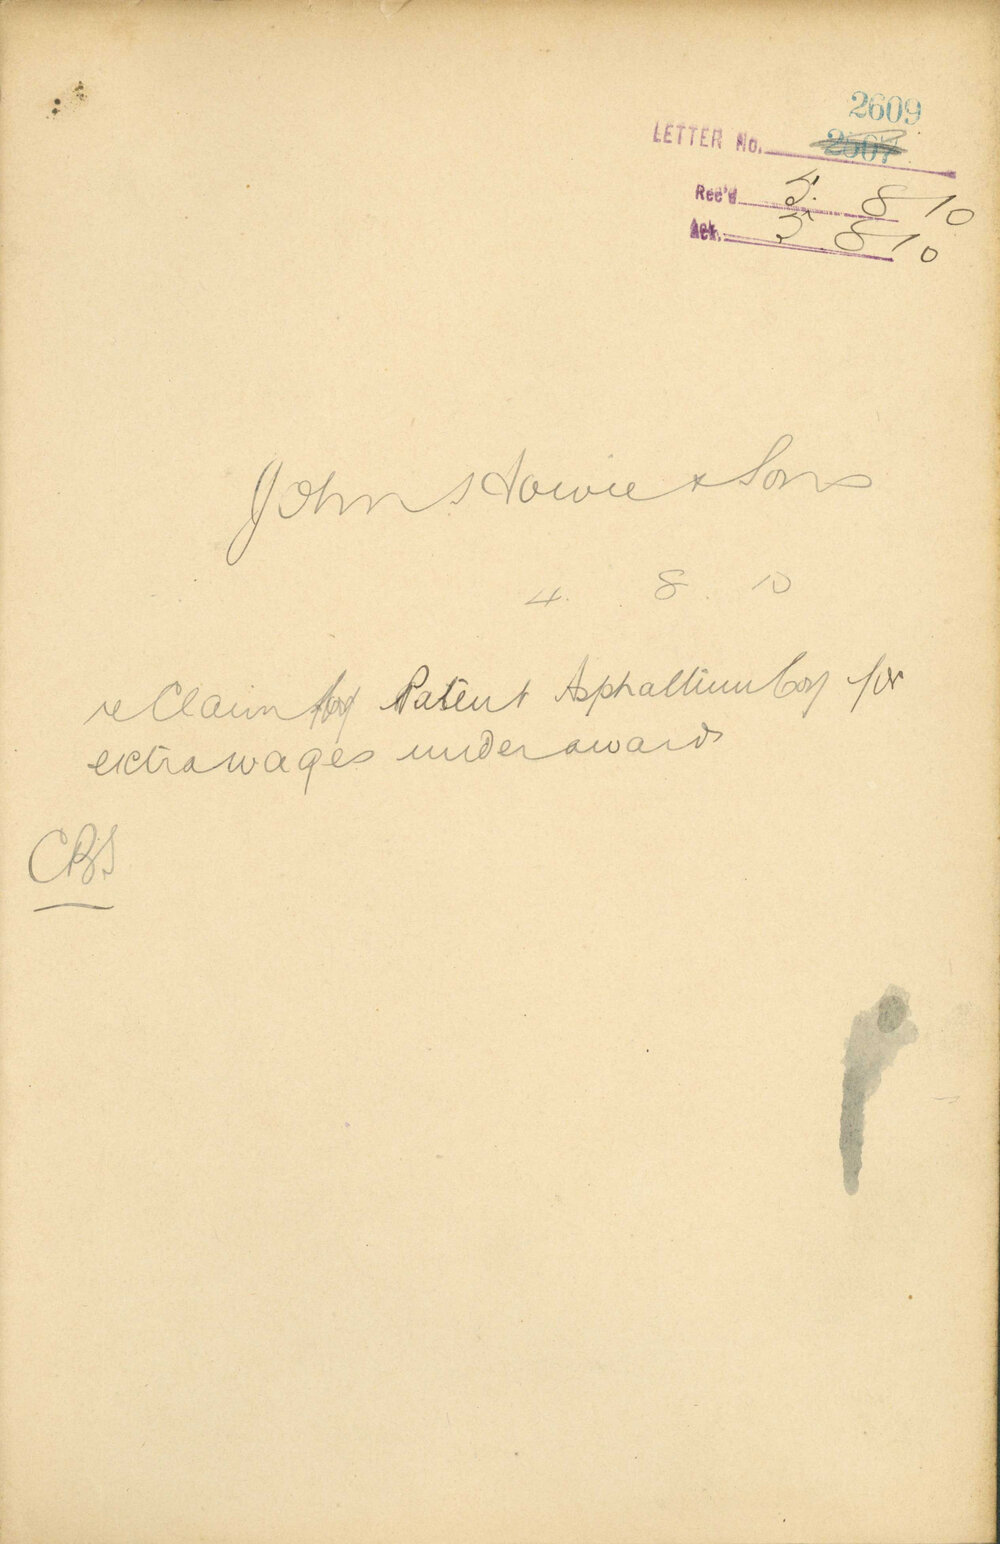 2609
LETTER No. 2507
Rec'd 5. 8 10
Ack. 5. 8 10
John Howie & Sons
4. 8. 10
re Claim by Patent Asphaltum Coy for
extra wages under award